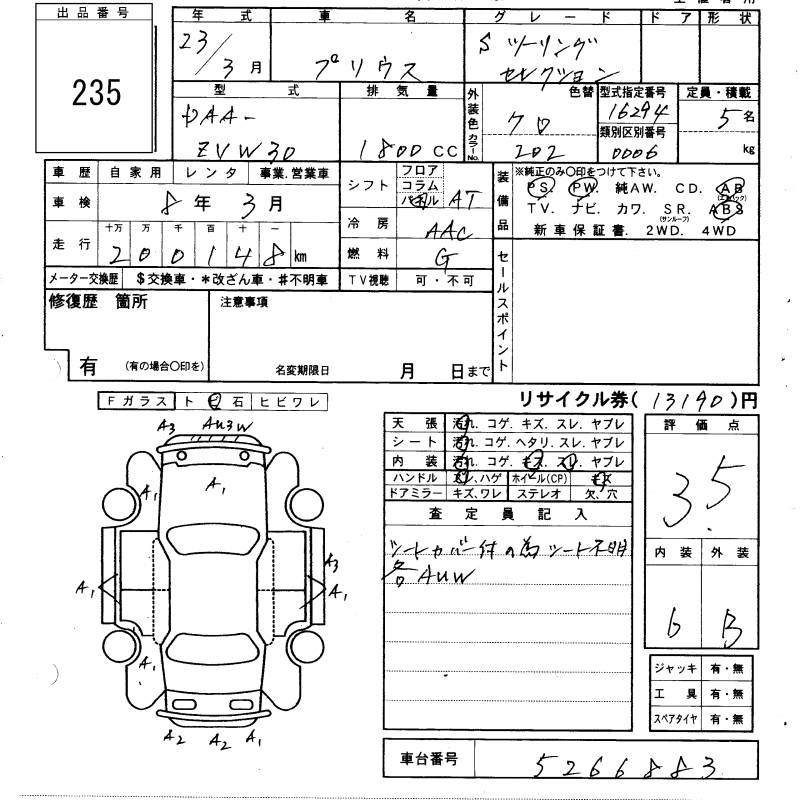 出品番号
235
年式
23/3月
車名
プリウス
グレード
S ツーリング
セレクション
ドア
形状
型式
DAA-
ZVW30
排気量
1800 CC
外装色
色替
クロ
カラーNo.
202
型式指定番号
16294
類別区別番号
0006
定員・積載
5名
kg
車歴
自家用
レンタ
事業.営業車
車検
8年3月
走行
十万 万 千 百 十 一
200148 km
メーター交換歴
$交換車・*改ざん車・#不明車
シフト
フロア
コラム
パネル
AT
冷房
AAC
燃料
G
TV視聴
可・不可
装備品
※純正のみ〇印をつけて下さい。
PS. PW. 純AW. CD. AB
(エアバック)
TV. ナビ. カワ. SR. ABS
(サンルーフ)
新車保証書. 2WD. 4WD
セールスポイント
修復歴 箇所
有 (有の場合〇印を)
注意事項
名変期限日 月 日まで
Fガラス
ト 石
ヒビワレ
リサイクル券(13190)円
天張 汚れ. コゲ. キズ. スレ. ヤブレ
シート 汚れ. コゲ. ヘタリ. スレ. ヤブレ
内装 汚れ. コゲ. キズ. スレ. ヤブレ
ハンドル スレ、ハゲ ホイール(CP) キズ
ドアミラー キズ、ワレ ステレオ 欠、穴
査定員記入
シートカバー付の為シート不明
各AUW
評価点
3.5
内装
外装
6
B
ジャッキ 有・無
工具 有・無
スペアタイヤ 有・無
車台番号
5266883
A3
AU3W
A1
A1
A3
A1
A1
A1
A2
A2
A1